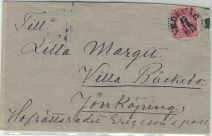 Till
Lilla Margit
Villa Bäckebo.
Jönköping.
Hofrättsrådet Ericson's